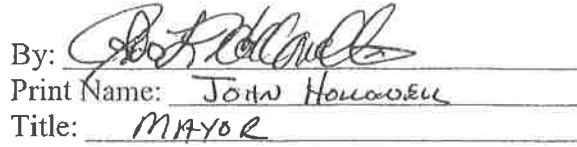 By:
Print Name: JOHN HOLLOWELL
Title: MAYOR